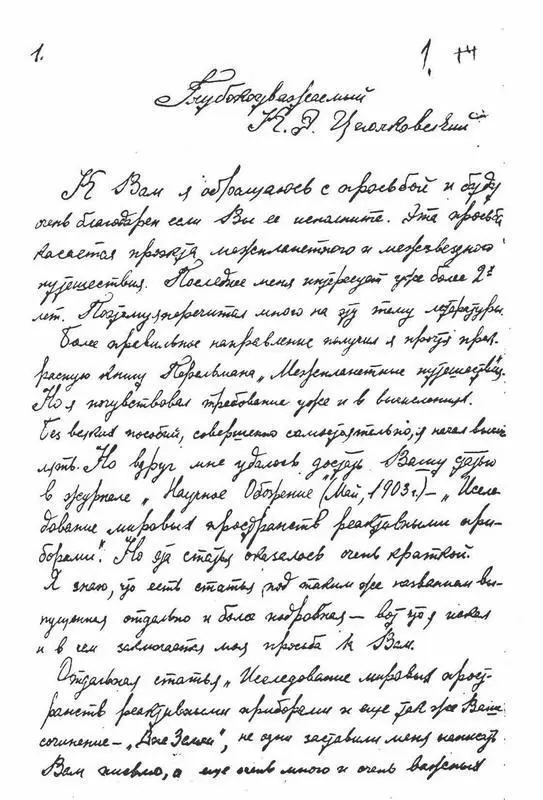 1.
1. тч
Глубокоуважаемый
К. Э. Циолковский
К Вам я обращаюсь с просьбой и буду
очень благодарен если Вы ее исполните. Эта просьба
касается проэкта межпланетного и межзвездного
путешествия. Последнее меня интересует уже более 2х
лет. Поэтому я перечитал много на эту тему литературы.
Более правильное направление получил я прочтя прек-
расную книгу Перельмана „Межпланетные путешествия“.
Но я почувствовал требование уже и в вычислениях.
Без всяких пособий, совершенно самостоятельно, я начал вычис-
лять. Но вдруг мне удалось достать Вашу статью
в журнале „Научное Обозрение“ (Май, 1903 г.) – „Иссле-
дование мировых пространств реактивными при-
борами“. Но эта статья оказалось очень краткой.
Я знаю, что есть статья под таким же названием вы-
пущенная отдельно и более подробная – вот что я искал
и в чем заключается моя просьба к Вам.
Отдельная статья „Исследование мировых прост-
ранств реактивными приборами и еще так же Ваше
сочинение – „Вне Земли“, не одни заставили меня написать
Вам письмо, а еще очень много и очень важных